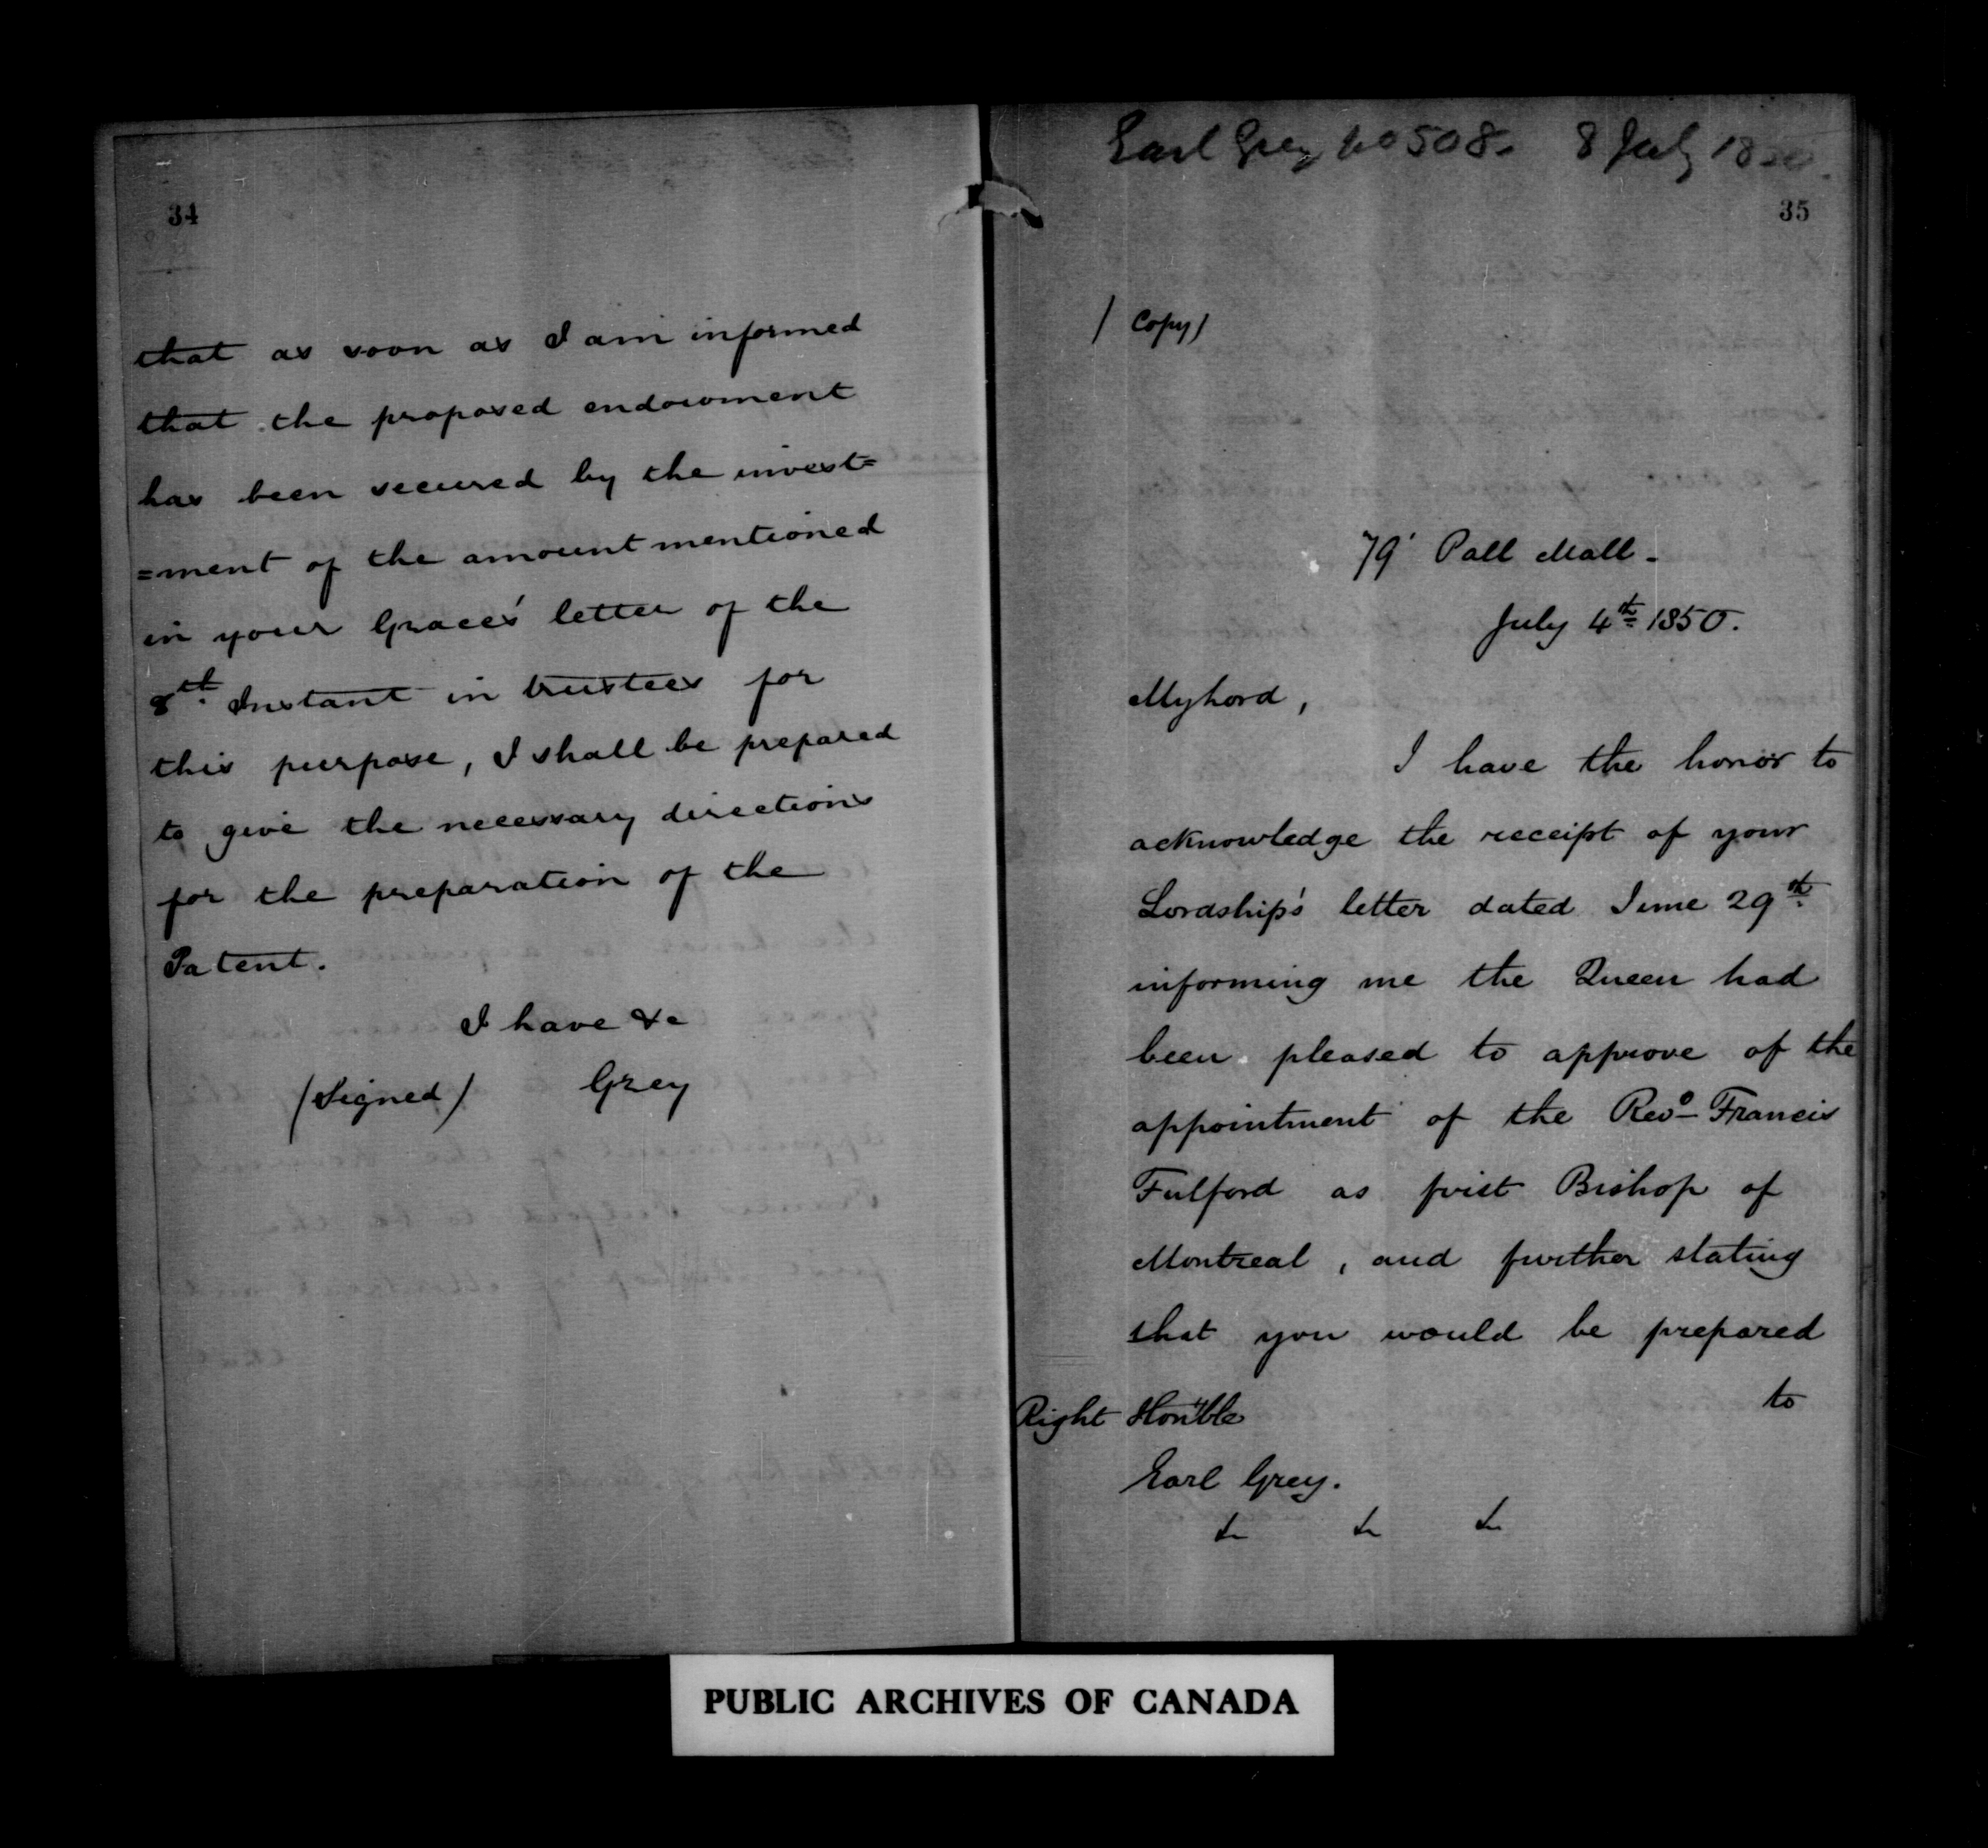 34
that as soon as I am informed
that the proposed endowment
has been secured by the invest=
=ment of the amount mentioned
in your Grace's letter of the
8th Instant in trustees for
this purpose, I shall be prepared
to give the necessary directions
for the preparation of the
Patent.
I have &c
(Signed) Grey
Earl Grey no 508. 8 July 1850.
35
(Copy)
79 Pall Mall -
July 4th 1850.
My Lord,
I have the honor to
acknowledge the receipt of your
Lordship's letter dated June 29th
informing me the Queen had
been pleased to approve of the
appointment of the Revd Francis
Fulford as first Bishop of
Montreal, and further stating
that you would be prepared
to
Right Honble
Earl Grey.
& & &
PUBLIC ARCHIVES OF CANADA